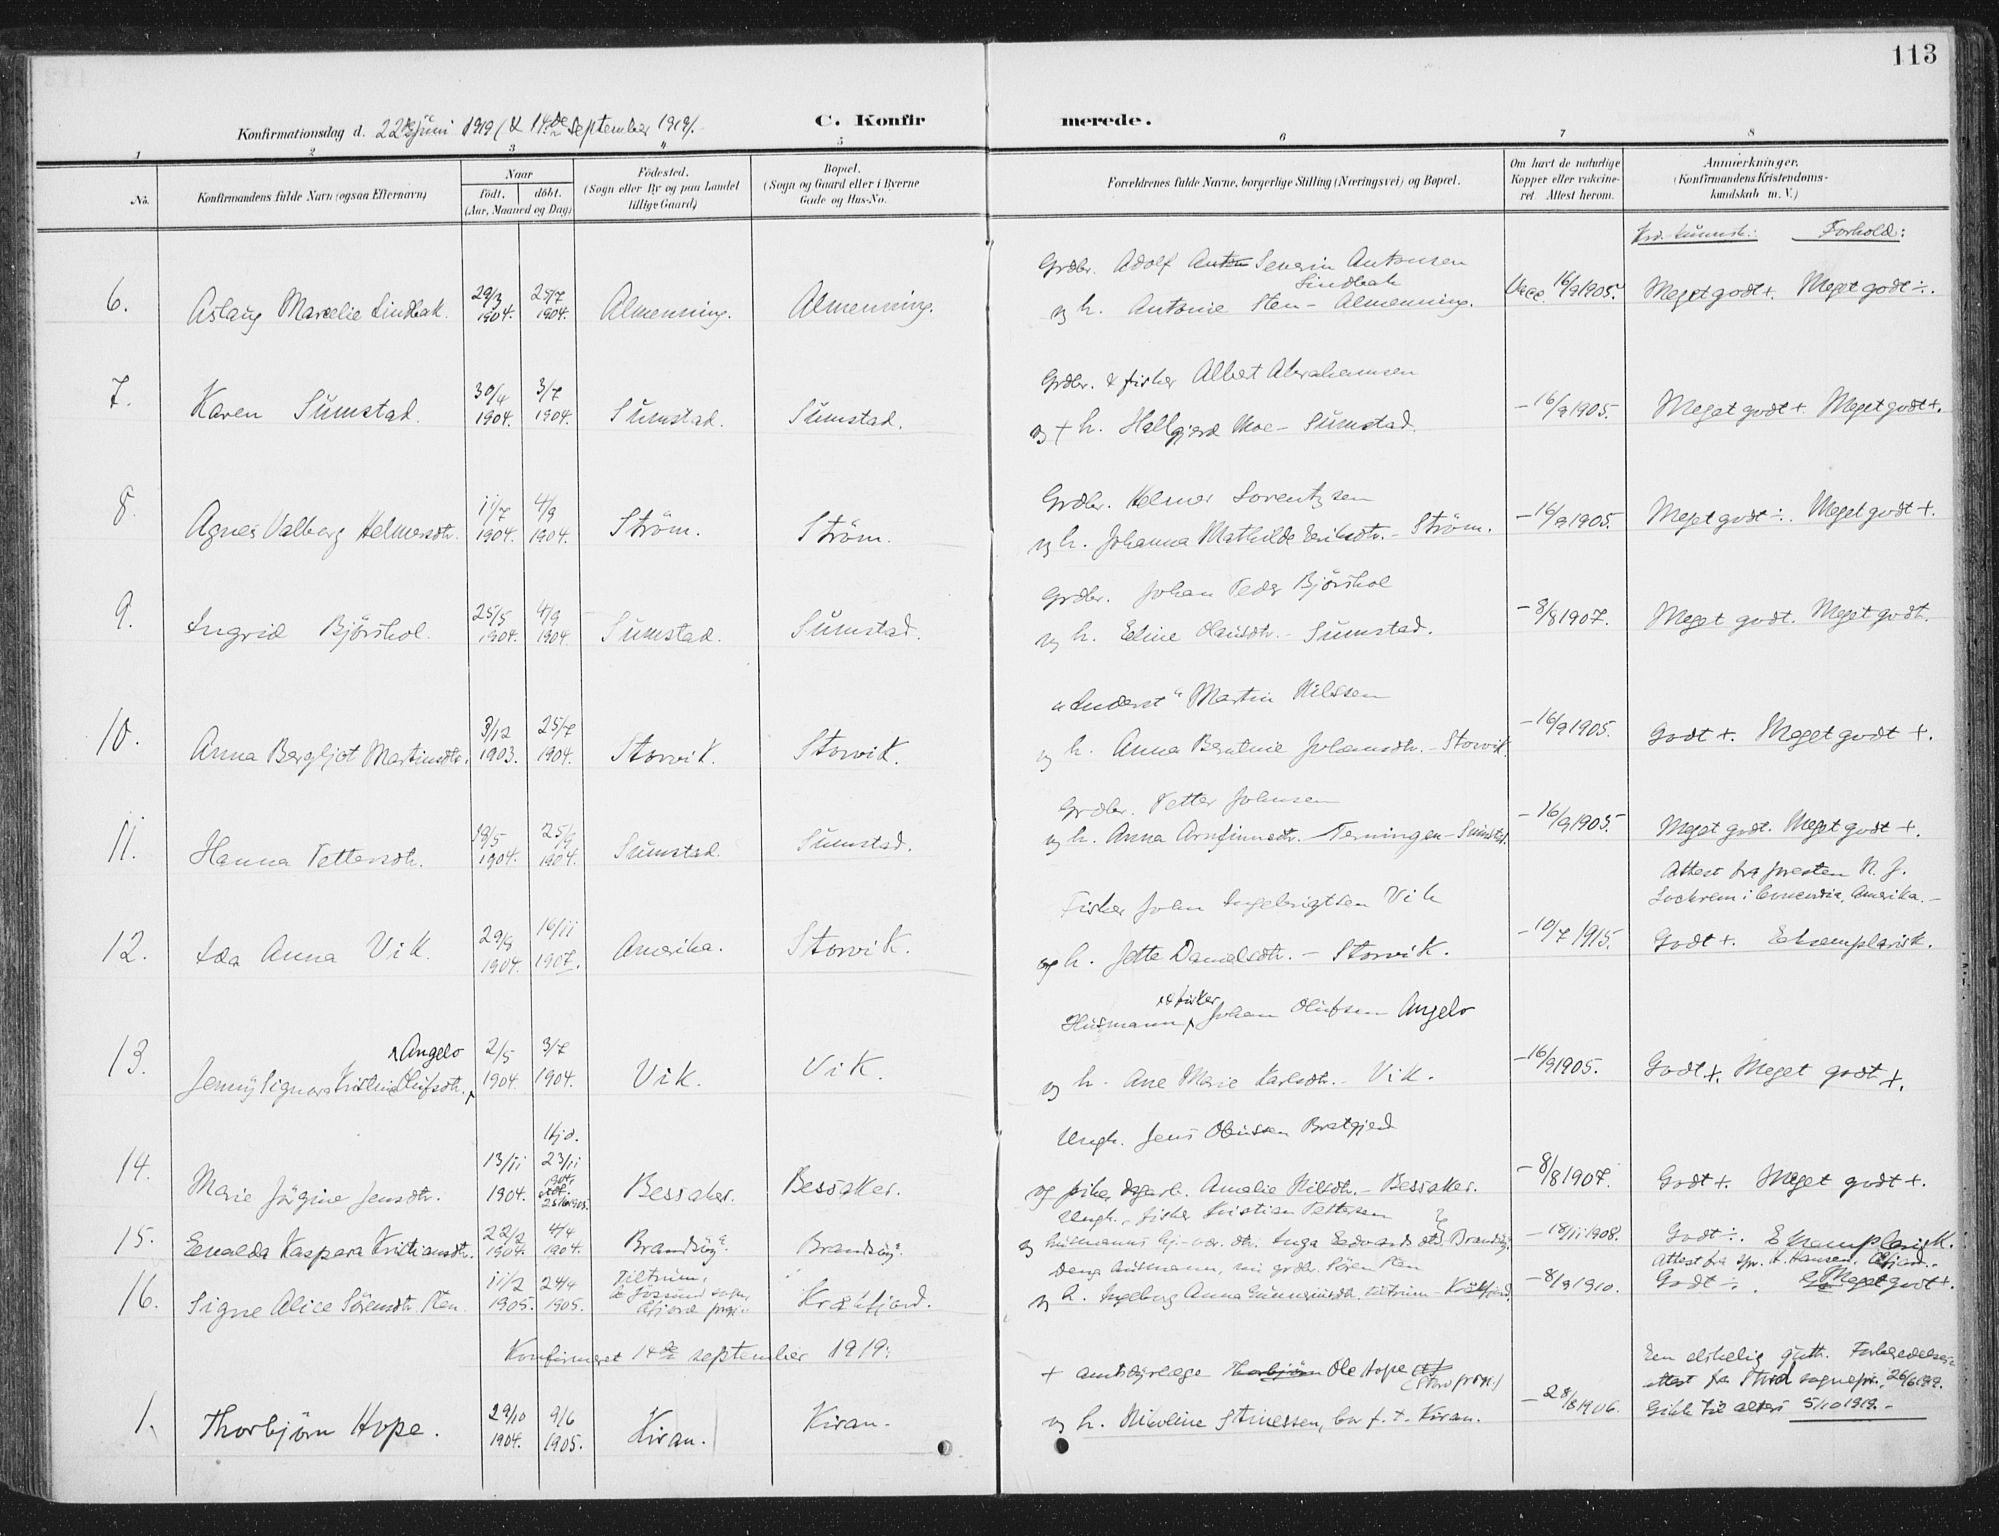 113
Konfirmationsdag d. 22de juni 1919 (& 14de september 1919).
C. Konfirmerede.
1 2 3 4 5 6 7 8
No.
Konfirmandens fulde Navn (ogsaa Efternavn)
Naar
født. døbt.
(Aar, Maaned og Dag)
Fødested.
(Sogn eller By og paa Landet
tillige Gaard)
Bopæl.
(Sogn og Gaard eller i Byerne
Gade og Hus-No.
Forældrenes fulde Navne, borgerlige Stilling (Næringsvei) og Bopæl.
Om havt de naturlige
Kopper eller vakcine-
ret. Attest herom.
Anmærkninger.
(Konfirmandens Kristendoms-
kundskab m. V.)
Krd. kunnsk.: Forhold:
Grdbr. Adolf Anton Severin Antonsen
Lindbak
6. Aslaug Marcelie Lindbak. 29/3 1904. 25/7 1904. Almenning. Almenning. og h. Antonie Sten - Almenning. Vacc. 16/9 1905. Meget godt +. Meget godt ÷.
Grdbr. & fisker Albert Abrahamsen
7. Karen Sumstad. 30/4 1904. 3/7 1904. Sumstad. Sumstad. og + h. Hallgjerd Moe - Sumstad. - 16/9 1905. Meget godt +. Meget godt +.
Grdbr. Helmer Lorentzsen
8. Agnes Valborg Helmersdtr. 11/7 1904. 4/9 1904. Strøm. Strøm. og h. Johanna Mathilde Eriksdtr. - Strøm. - 16/9 1905. Meget godt ÷. Meget godt +.
Grdbr. Johan Peder Bjørshol
9. Ingrid Bjørshol. 25/5 1904. 4/9 1904. Sumstad. Sumstad. og h. Eline Olausdtr. - Sumstad. - 8/8 1907. Meget godt. Meget godt.
"Inderst" Martin Nilssen
10. Anna Bergljot Martinsdtr. 3/12 1903. 25/7 1904. Storvik. Storvik. og h. Anna Berntine Johansdtr. - Storvik. - 16/9 1905. Godt +. Meget godt +.
Grdbr. Petter Johnsen
11. Hanna Pettersdtr. 19/5 1904. 25/9 1904. Sumstad. Sumstad. og h. Anna Arnfinnsdtr. Terningen - Sumstad. - 16/9 1905. Meget godt. Meget godt +.
Attest fra presten N. J.
Lockrem i Amerika. -
Fisker John Ingebrigtsen Vik
12. Ida Anna Vik. 29/8 1904. 16/11 1907. Amerika. Storvik. og h. Jette Danielsdtr. - Storvik. - 10/7 1915. Godt +. Eksemplarisk.
Husmann & fisker Johan Olufsen Angelo
13. Jenny Signora Kristine Olufsdtr. Angelo 2/5 1904. 3/7 1904. Vik. Vik. og h. Ane Marie Karlsdtr. - Vik. - 16/9 1905. Godt +. Meget godt +.
Ungk. Jens Olaussen Bratgjerd
14. Marie Jørgine Jensdtr. 13/11 1904. Hjd. 23/11 1904. 25/6 1905. Bessaker. Bessaker. og pike Amalie Nilsdtr. - Bessaker. - 8/8 1907. Godt +. Meget godt +.
Ungk., fisker Kristian Pettersen
15. Evalda Kaspara Kristiansdtr. 22/2 1904. 4/4 1904. Brandsøy. Brandsøy. og husmanns hj-vær. dtr. Inga Edvardsdtr. Brandsøy. - 18/11 1908. Godt ÷. Eksemplarisk.
Attest fra spr. H. Hansen, Åfjord.
Søren Sten
16. Signe Alice Sørensdtr. Sten. 11/2 1905. 24/4 1905. Tiltrum, Jøssund sogn, Åfjord prgj. Kråkfjord. og h. Ingeborg Anna Gunneriusdtr. Tiltrum - Kråkfjord. - 8/9 1910. Godt ÷. Meget godt +.
Konfirmeret 14de september 1919:
+ amtsdyrlæge Thorbjørn Ole Hope (Stord prgj.)
En elskelig gutt. Forberedelses-
attest fra Stord sognepr. 26/6 1919.
1. Thorbjørn Hope. 29/10 1904. 9/6 1905. Kiran. Kiran. og h. Nikoline Stinessen, bor f. t. Kiran. - 28/8 1906. Gikk til alters 5/10 1919. -